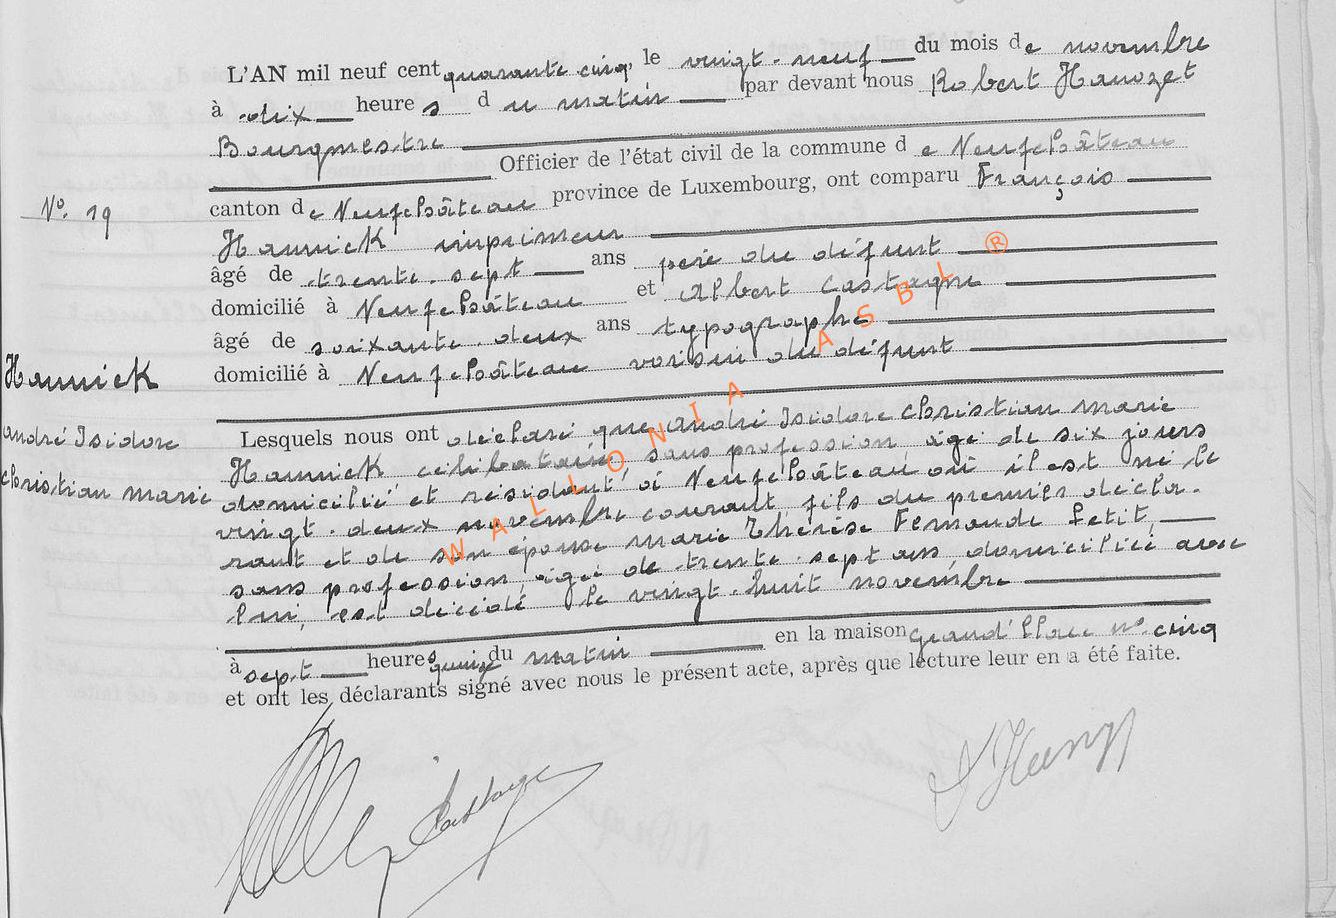 L'AN mil neuf cent quarante cinq, le vingt-neuf du mois de novembre
à dix heures du matin par devant nous Robert Hanozet
Bourgmestre
Officier de l'état civil de la commune de Neufchâteau
N° 19
canton de Neufchâteau province de Luxembourg, ont comparu François
Hannick imprimeur
âgé de trente-sept ans père du défunt
domicilié à Neufchâteau et Albert Castagne
âgé de soixante-deux ans typographe
domicilié à Neufchâteau voisin du défunt
Hannick
André Isidore
Christian marie
Lesquels nous ont déclaré que André Isidore Christian marie
Hannick célibataire sans profession âgé de six jours
domicilié et résidant à Neufchâteau où il est né le
vingt-deux novembre courant, fils du premier décla-
rant et de son épouse marie Thérèse Fernande Petit,
sans profession, âgée de trente-sept ans, domiciliée avec
lui, est décédé le vingt-huit novembre
à sept heures quinze du matin en la maison grand'Place n° cinq
et ont les déclarants signé avec nous le présent acte, après que lecture leur en a été faite.
Castagne
WALLONIA ASBL ®